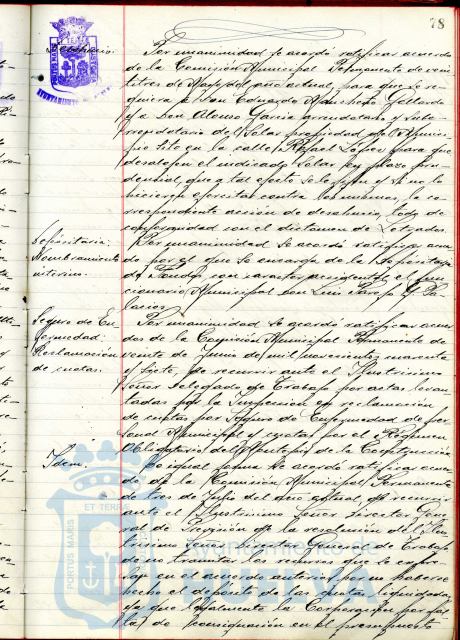 78
Por unanimidad se acordó ratificar acuerdo
de la Comisión Municipal Permanente de vein-
titres de Mayo del año actual, para que se re-
quiera a Don Eduardo Manchego Gallardo
y a Don Alonso Garcia arrendatario y sub-a-
rrendatario del Solar propiedad del Munici-
pio sito en la calle Rafael López para que
desalojen el indicado Solar en plazo pru-
dencial, que a tal efecto se les fije y si no lo
hicieren ejercitar contra los mismos la co-
rrespondiente acción de desahucio, todo de
conformidad con el dictamen de Letrados.
Depositaria.
Nombramiento
interino.
Por unanimidad se acordó ratificar acuer-
do por el que se encarga de la Depositaria
de Fondos con caracter accidental el fun-
cionario Municipal Don Luis
Seguro de En-
fermedad.
Reclamación
de cuotas.
Por unanimidad se acordó ratificar acuer-
do de la Comisión Municipal Permanente de
veinte de Junio de mil novecientos cuarenta
y siete, de recurrir ante el Ilustrisimo
Señor Delegado de Trabajo por actas levan-
tadas por la Inspección en reclamación
de cuotas por Seguro de Enfermedad de per-
sonal Municipal y cuotas por el Regimen
Obligatorio del Montepio de la Construcción
Idem.
De igual forma se acordó ratificar acuer-
do de la Comisión Municipal Permanente
de tres de Julio del año actual, de recurrir
ante el Ilustrisimo Señor Director Gene-
ral de Previsión de la resolución del Ilus-
trisimo Señor Delegado de Trabajo
de no tramitar los recursos que se
en el acuerdo anterior por no haberse
hecho el deposito de las cuotas liquidadas
ya que legalmente la Corporación por fal-
ta de consignación en el presupuesto
AYUNTAMIENTO
PORTUS MARIS
ET TERRAE
Ayuntamiento de
HUELVA